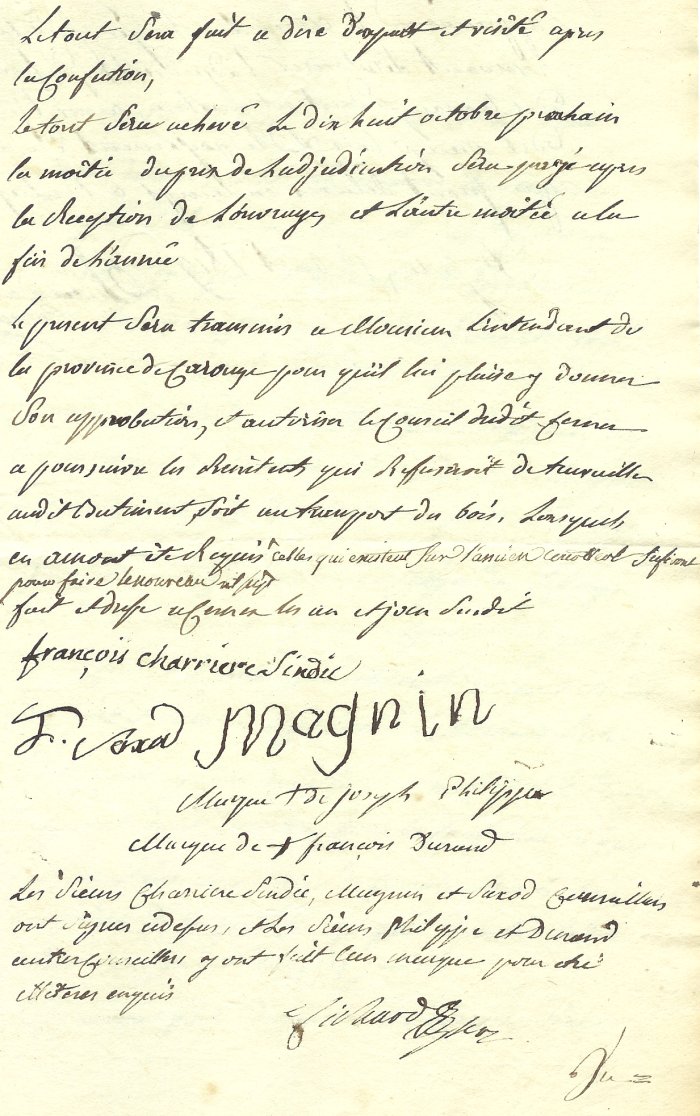 Le tout sera fait a dire d'expert et visité apres
la Confection,
Le tout sera achevé Le dix huit octobre prochain
la moitié du prix de L'adjudication sera payé apres
la Reception de L'ouvrages et L'autre moitié a la
fin de L'année
Le present sera transmis a Monsieur L'intendant de
la province de Carouge pour qu'il lui plaise y donner
son approbation, et autoriser le Conseil dudit Cernex
a poursuivre les Recitents qui Refuseroit de travailler
audit Batiment, soit au transport du bois, Lorsquils
en auront eté Requis celles qui existent sur l'ancien sufisent
pour faire le nouveau
fait et dressé a Cernex les an et jour Susdit
françois charriere Sindic
F. Saxod Magnin
Marque + de joseph Philippe
Marque de + françois Durand
Les Sieurs Charriere Sindic, Magnin et Saxod Conseillers
ont signés cydessus, et Les Sieurs Philippe et Durand
autres Conseillers y ont fait leur marque pour etre
illiteres enquis